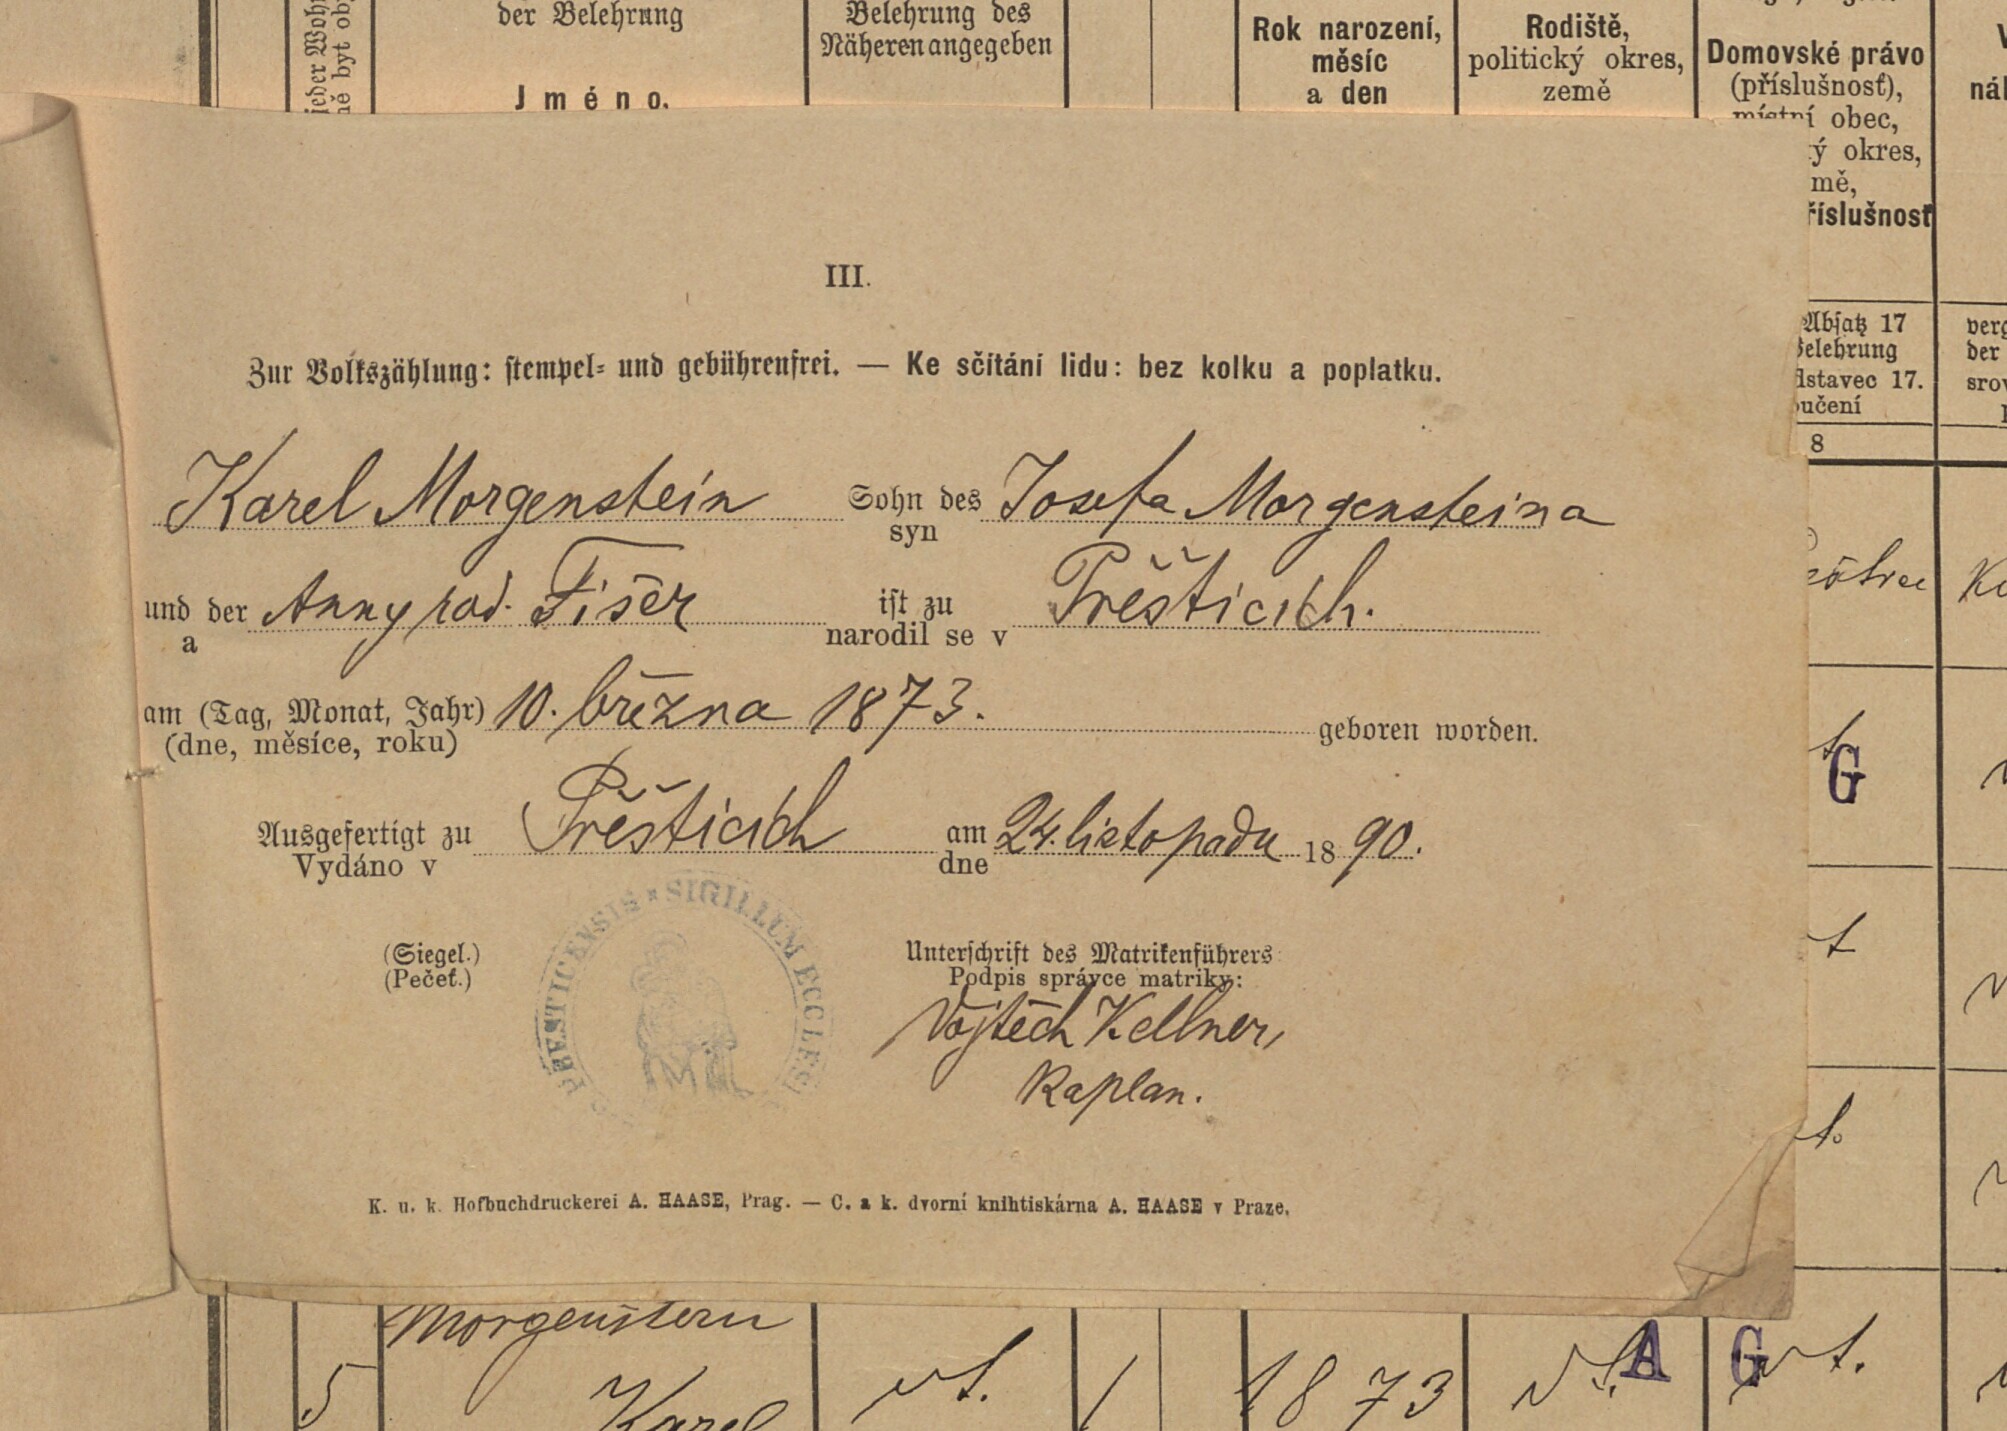 jeder Woh
ně byt ob
der Belehrung
Jméno.
Belehrung des
Näheren angegeben
Rok narození,
měsíc
a den
Rodiště,
politický okres,
země
Domovské právo
(příslušnosť),
místní obec,
ý okres,
mě,
říslušnosť
nál
Absatz 17
Belehrung
dstavec 17.
učení
verg
der
srov
8
III.
Zur Volkszählung: stempel- und gebührenfrei. — Ke sčítání lidu: bez kolku a poplatku.
Karel Morgenstein Sohn des Josefa Morgensteina
syn
und der Anny rod. Fišer ist zu Přěšticích.
a narodil se v
am (Tag, Monat, Jahr) 10. března 1873. geboren worden.
(dne, měsíce, roku)
Ausgefertigt zu Přěšticích am 24. listopadu 1890.
Vydáno v dne
(Siegel.)
(Pečeť.)
PŘESTICENSIS * SIGILLUM ECCLESI
Unterschrift des Matrikenführers
Podpis správce matriky:
Vojtěch Kellner,
Kaplan.
K. u. k. Hofbuchdruckerei A. HAASE, Prag. — C. a k. dvorní knihtiskárna A. HAASE v Praze.
G
t
t.
Morgenstern
5 Karel vt. 1 1873 vt. A G vt.